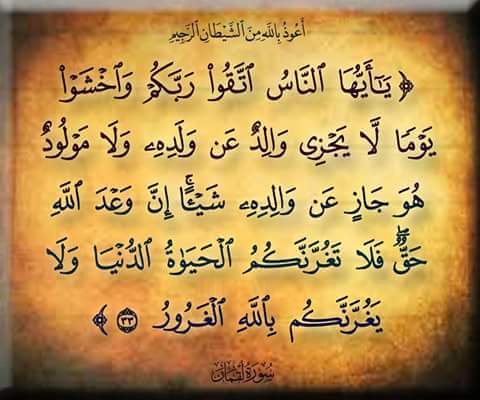 أَعُوذُ بِاللَّهِ مِنَ الشَّيْطَانِ الرَّجِيمِ
﴿ يَٰٓأَيُّهَا ٱلنَّاسُ ٱتَّقُوا۟ رَبَّكُمْ وَٱخْشَوْا۟
يَوْمًا لَّا يَجْزِى وَالِدٌ عَن وَلَدِهِۦ وَلَا مَوْلُودٌ
هُوَ جَازٍ عَن وَالِدِهِۦ شَيْـًٔا ۚ إِنَّ وَعْدَ ٱللَّهِ
حَقٌّ ۖ فَلَا تَغُرَّنَّكُمُ ٱلْحَيَوٰةُ ٱلدُّنْيَا وَلَا
يَغُرَّنَّكُم بِٱللَّهِ ٱلْغَرُورُ ٣٣ ﴾
سُورَةُ لُقْمَانَ